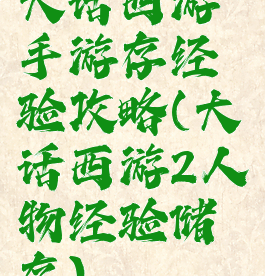 大话西游
手游存经
验攻略(大
话西游2人
物经验储
存)